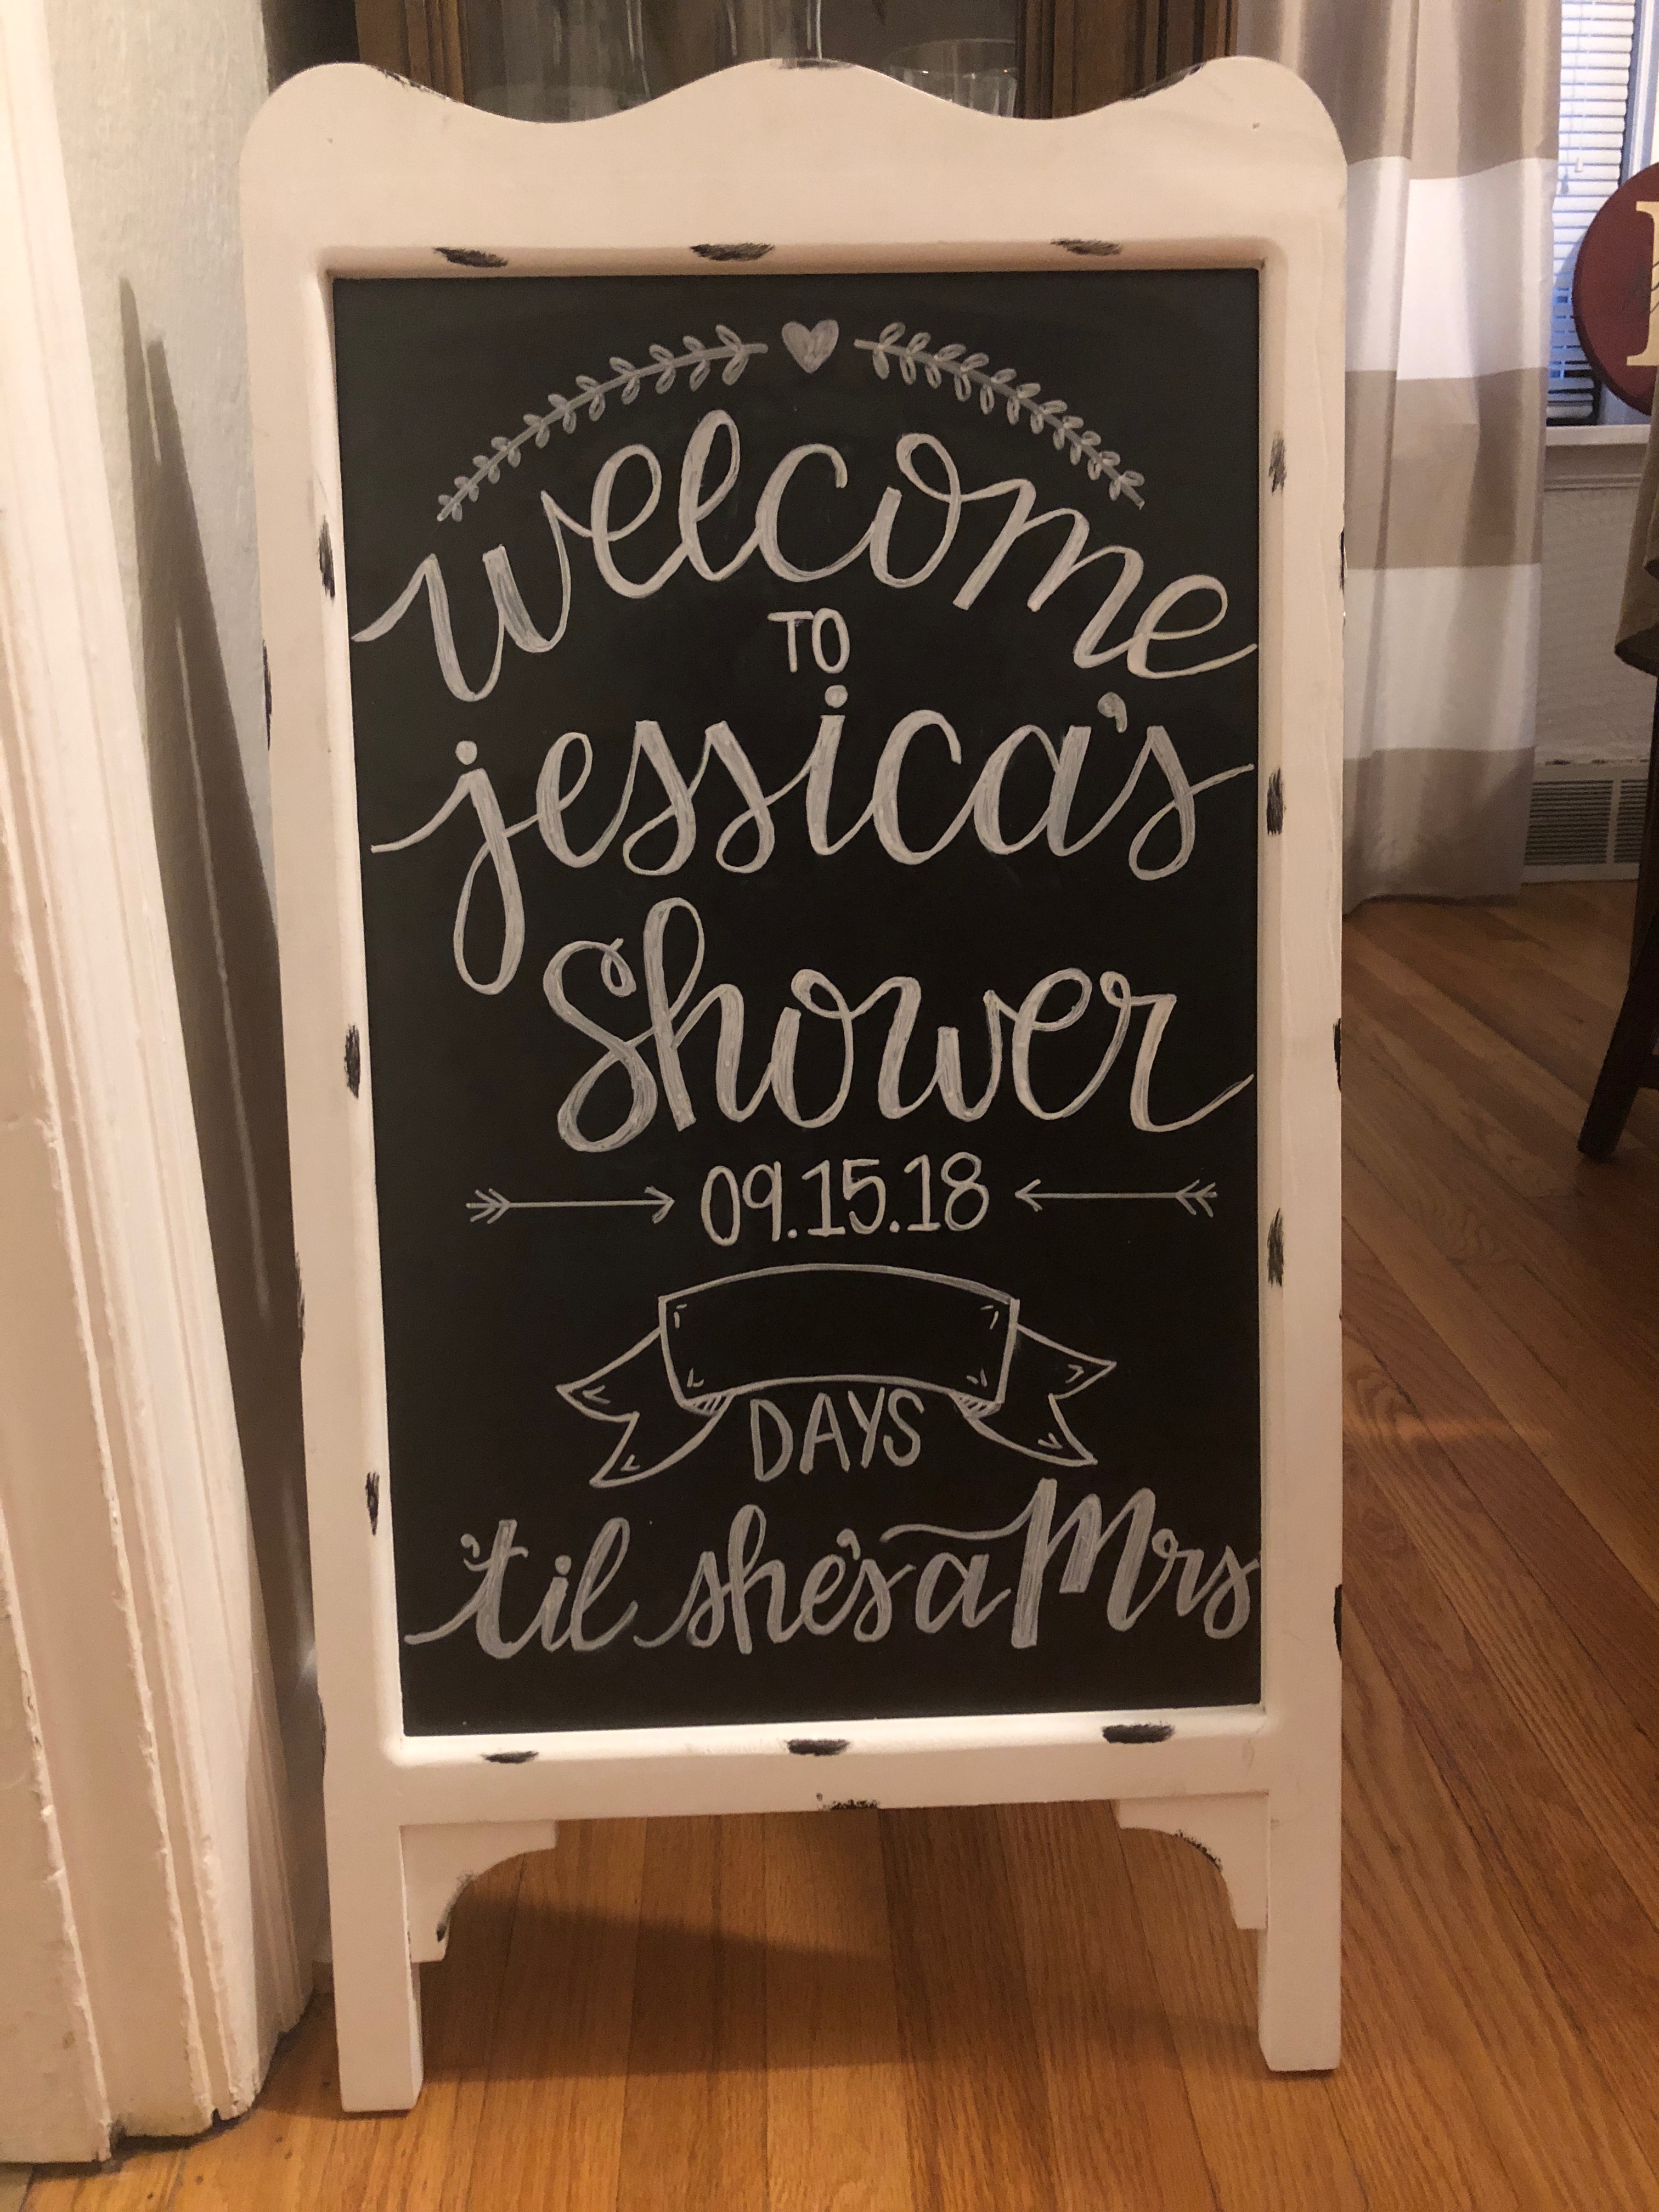 welcome
TO
jessica's
Shower
09.15.18
DAYS
'til she's a Mrs